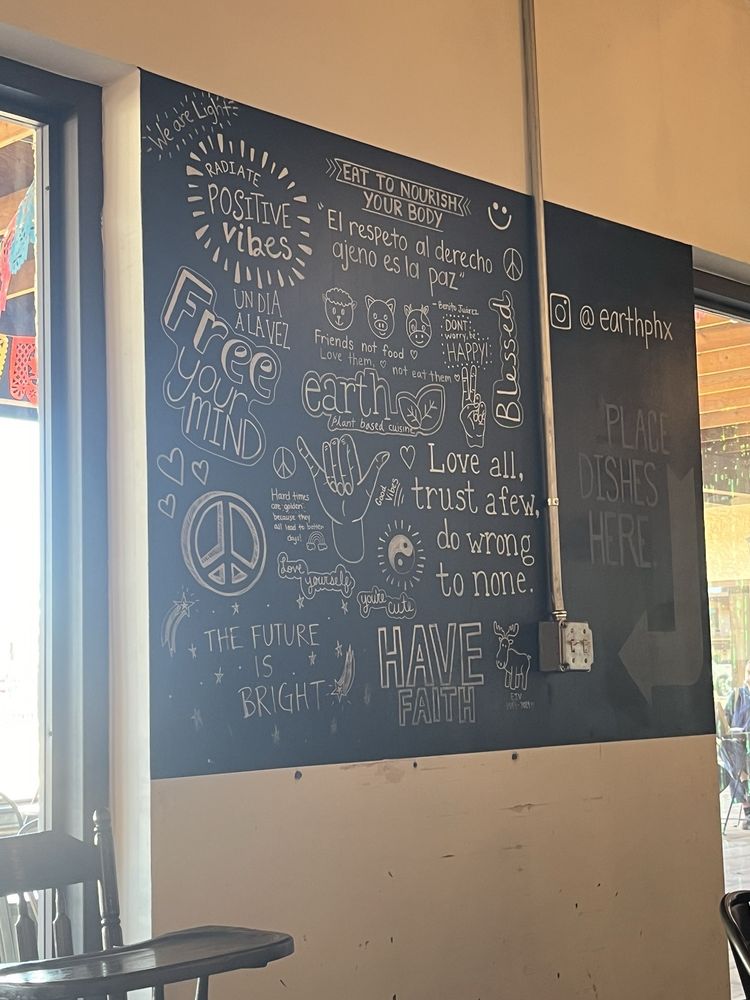 We are Light
RADIATE
POSITIVE
vibes
EAT TO NOURISH
YOUR BODY
"El respeto al derecho
ajeno es la paz"
- Benito Juárez
UN DIA
A LA VEZ
Free
your
MIND
Friends not food
Love them, not eat them
DONT
worry, be
HAPPY!
Blessed
@earthphx
earth
plant based cuisine
PLACE
DISHES
HERE
Hard times
are golden
because they
all lead to better
days!
Good
Vibes
Love all,
trust a few,
do wrong
to none.
Love
yourself
you're
cute
THE FUTURE
IS
BRIGHT
HAVE
FAITH